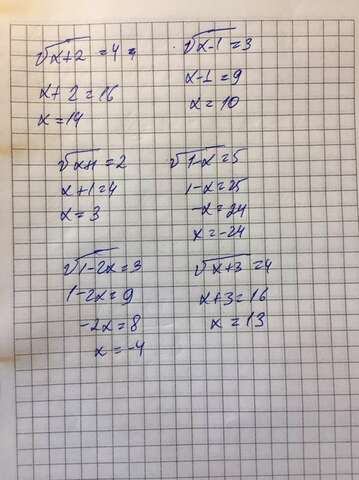 √x+2 = 4
x+2 = 16
x = 14
√x-1 = 3
x-1 = 9
x = 10
√x+1 = 2
x+1 = 4
x = 3
√1-x = 5
1-x = 25
-x = 24
x = -24
√1-2x = 3
1-2x = 9
-2x = 8
x = -4
√x+3 = 4
x+3 = 16
x = 13